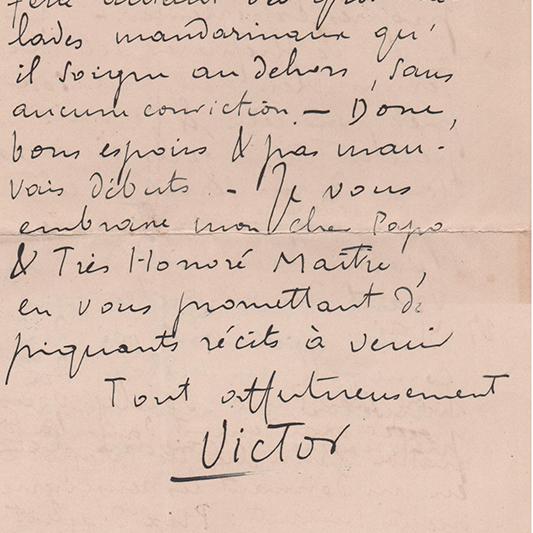 lades mandarinaux qu'
il soigne au dehors, sans
aucune conviction. — Donc,
bons espoirs & pas mau-
vais débuts. — Je vous
embrasse mon cher Papa
& Très Honoré Maître,
en vous promettant de
piquants récits à venir
Tout affectueusement
Victor